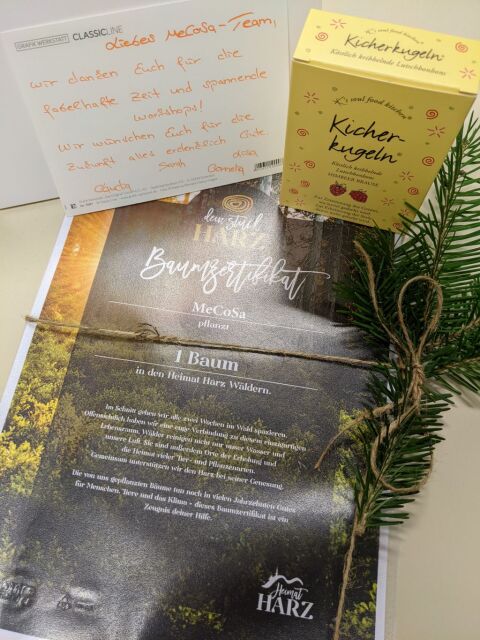 GRAFIK WERKSTATT CLASSICLINE
Liebes MeCoSa-Team,
wir danken Euch für die
fabelhafte Zeit und spannende
Workshops!
Wir wünschen Euch für die
Zukunft alles erdenklich Gute.
Sarah
Cornelia
Kicherkugeln
Köstlich kribbelnde Lutschbonbons
soul food kitchen
Kicher-
kugeln
Köstlich kribbelnde
Lutschbonbons
HIMBEER BRAUSE
dein Stück
HARZ
Baumzertifikat
MeCoSa
pflanzt
1 Baum
in den Heimat Harz Wäldern.
Im Schnitt gehen wir alle zwei Wochen im Wald spazieren.
Offensichtlich haben wir eine enge Verbindung zu diesem einzigartigen
Lebensraum. Wälder reinigen nicht nur unser Wasser und
unsere Luft. Sie sind außerdem Orte der Erholung und
die Heimat vieler Tier- und Pflanzenarten.
Gemeinsam unterstützen wir den Harz bei seiner Genesung.
Die von uns gepflanzten Bäume tun noch in vielen Jahrzehnten Gutes
für Menschen, Tiere und das Klima - dieses Baumzertifikat ist ein
Zeugnis deiner Hilfe.
Heimat
HARZ